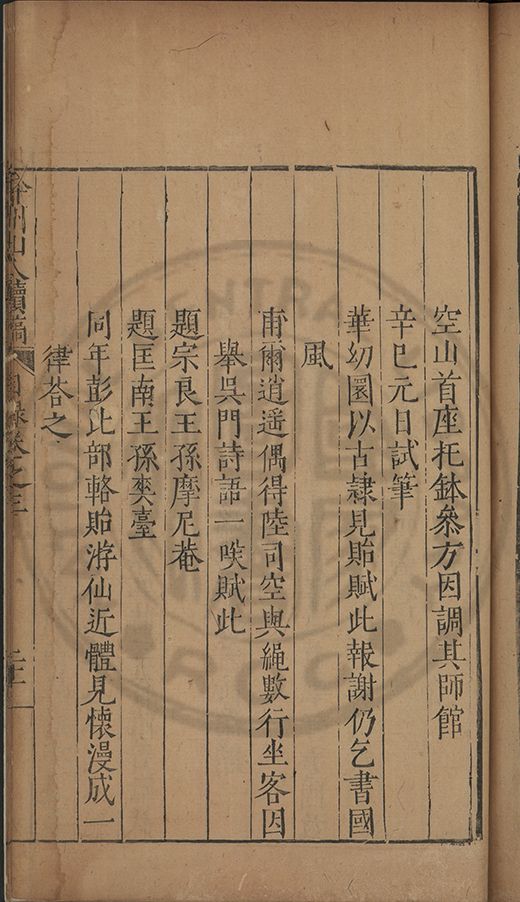 空山首座托鉢叅方因調其師館
辛巳元日試筆
華幼園以古隷見貽賦此報謝仍乞書國
風
甫爾逍遥偶得陸司空與繩數行坐客因
舉吳門詩語一唉賦此
題宗良王孫摩尼菴
題匡南王孫奕臺
同年彭比部輅貽游仙近體見懷漫成一
律荅之
弇州山人續稿
目録卷之三